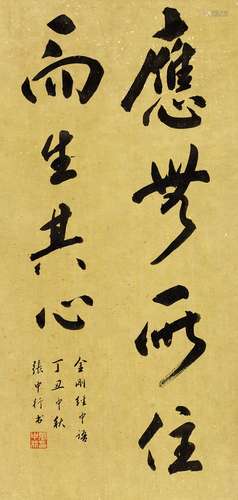 應無所住
而生其心
金剛經中語
丁丑中秋
張中行書